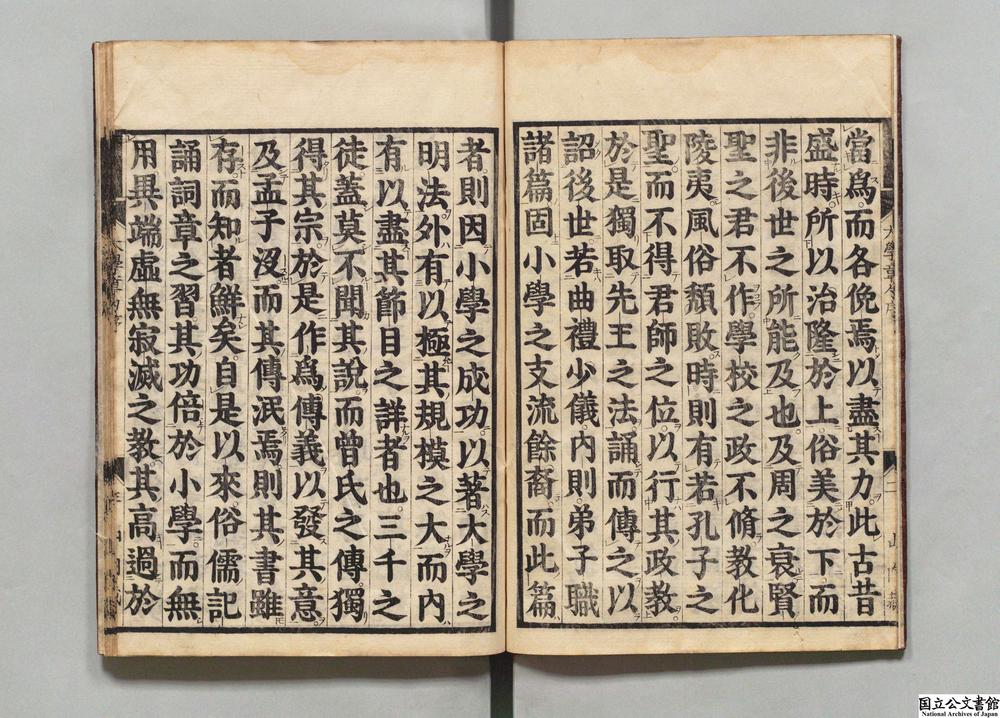 當爲而各俛焉以盡其力此古昔
盛時所以治隆於上俗美於下而
非後世之所能及也及周之衰賢
聖之君不作學校之政不脩教化
陵夷風俗頽敗時則有若孔子之
聖而不得君師之位以行其政教
於是獨取先王之法誦而傳之以
詔後世若曲禮少儀內則弟子職
諸篇固小學之支流餘裔而此篇
者則因小學之成功以著大學之
明法外有以極其規模之大而內
有以盡其節目之詳者也三千之
徒蓋莫不聞其說而曾氏之傳獨
得其宗於是作爲傳義以發其意
及孟子沒而其傳泯焉則其書雖
存而知者鮮矣自是以來俗儒記
誦詞章之習其功倍於小學而無
用異端虛無寂滅之教其高過於
国立公文書館
National Archives of Japan